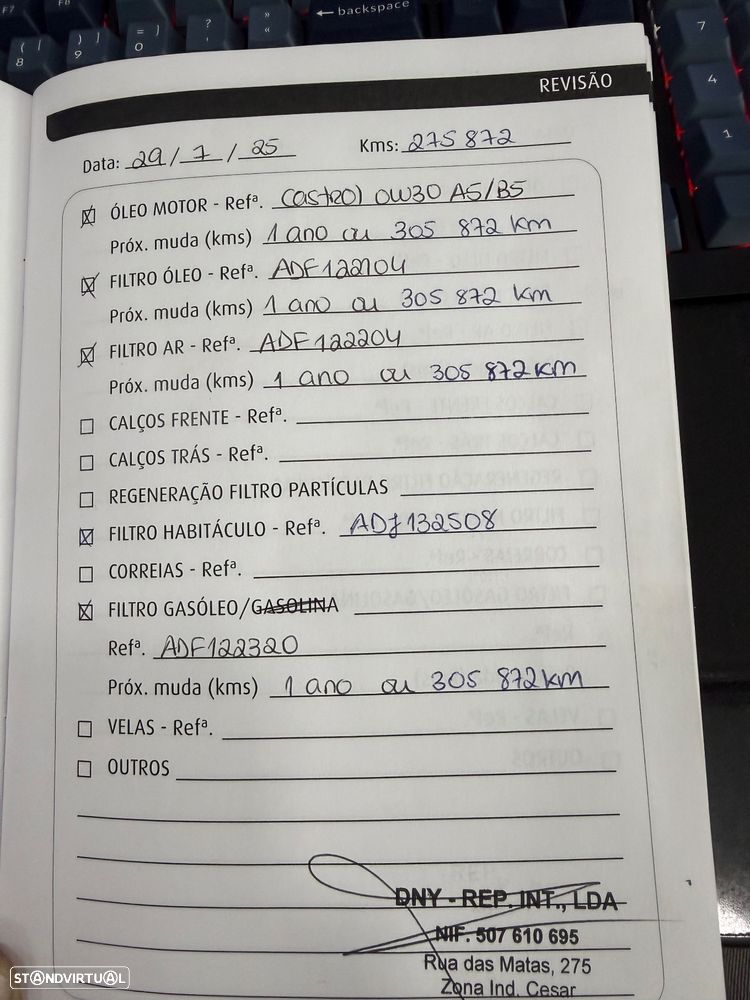 F7
F8
backspace
( |
8
) ]
9
= }
0
?
'
»
«
7
4
1
REVISÃO
Data: 29 / 7 / 25 Kms: 275 872
ÓLEO MOTOR - Refª. Castrol 0W30 A5/B5
Próx. muda (kms) 1 ano ou 305 872 km
FILTRO ÓLEO - Refª. ADF122104
Próx. muda (kms) 1 ano ou 305 872 km
FILTRO AR - Refª. ADF122204
Próx. muda (kms) 1 ano ou 305 872 km
CALÇOS FRENTE - Refª.
CALÇOS TRÁS - Refª.
REGENERAÇÃO FILTRO PARTÍCULAS
FILTRO HABITÁCULO - Refª. ADJ132508
CORREIAS - Refª.
FILTRO GASÓLEO/GASOLINA
Refª. ADF122320
Próx. muda (kms) 1 ano ou 305 872 km
VELAS - Refª.
OUTROS
DNY - REP. INT., LDA
NIF. 507 610 695
Rua das Matas, 275
Zona Ind. Cesar
STANDVIRTUAL